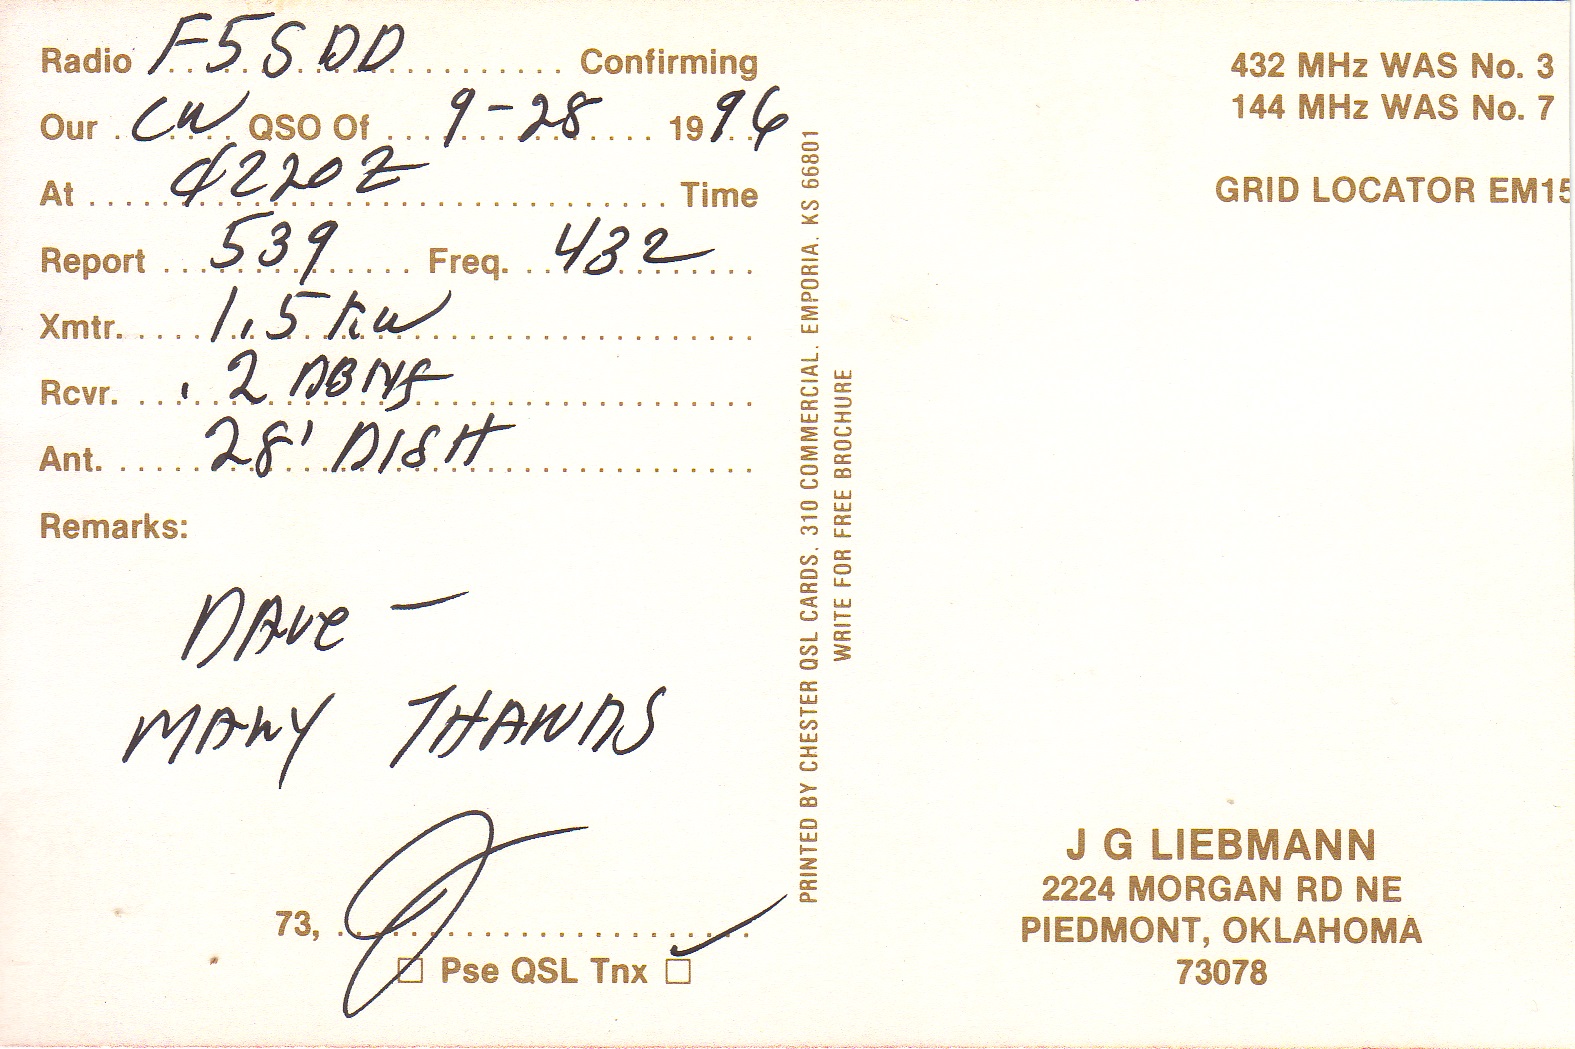 Radio F5SDD Confirming
Our CW QSO Of 9-28 1996
At 0220Z Time
Report 539 Freq. 432
Xmtr. 1.5 KW
Rcvr. .2 DBNF
Ant. 28' DISH
Remarks:
DAVE —
MANY THANKS
73,
Pse QSL Tnx
PRINTED BY CHESTER QSL CARDS, 310 COMMERCIAL, EMPORIA, KS 66801
WRITE FOR FREE BROCHURE
432 MHz WAS No. 3
144 MHz WAS No. 7
GRID LOCATOR EM15
J G LIEBMANN
2224 MORGAN RD NE
PIEDMONT, OKLAHOMA
73078